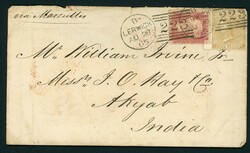 via Marseilles
LERWICK
223
223
Mr William Irvine Jr.
Messrs J. O. Hay & Co
Akyab
India